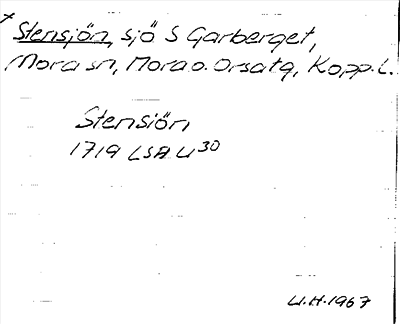 Stensjön, sjö S Garberget,
Mora sn, Mora o. Orsa tg, Kopp. L.
Stensiön
1719 LSA U30
U.H. 1967